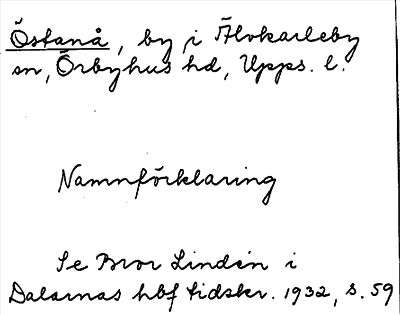 Östanå, by i Älvkarleby
sn, Örbyhus hd, Upps. l.
Namnförklaring
Se Bror Lindén i
Dalarnas hbf tidskr. 1932, s. 59